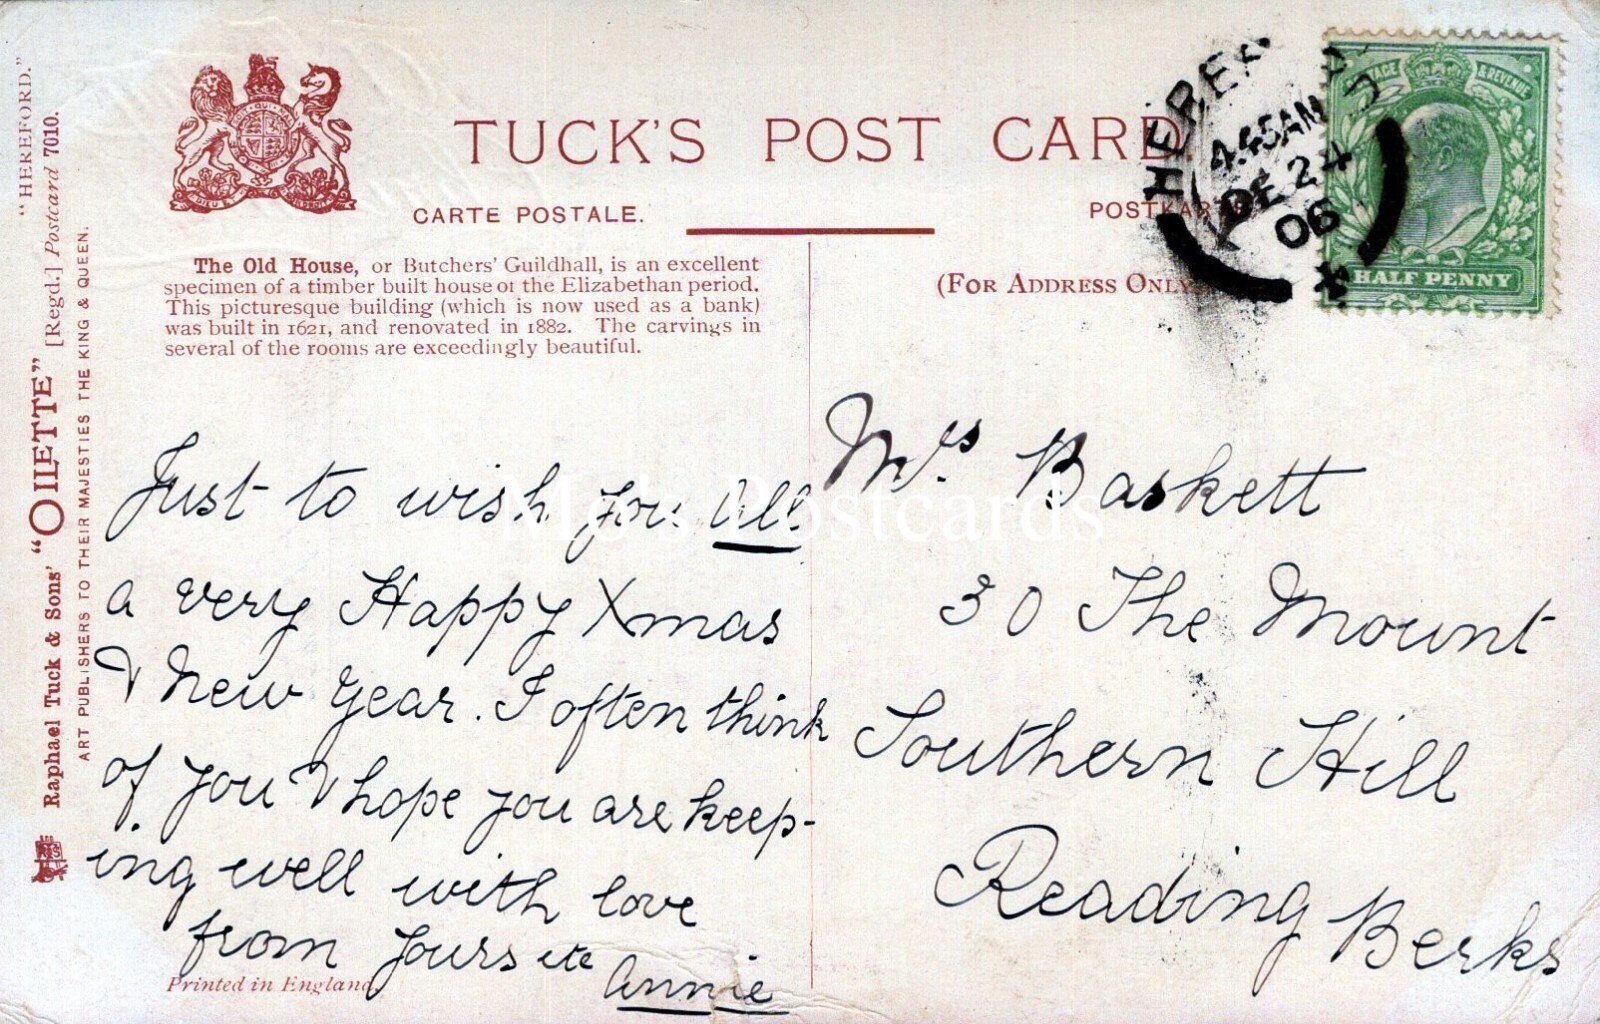 "HEREFORD."
Raphael Tuck & Sons' "OILETTE" [Regd.] Postcard 7010.
ART PUBLISHERS TO THEIR MAJESTIES THE KING & QUEEN.
TUCK'S POST CARD.
CARTE POSTALE.
POSTKARTE
The Old House, or Butchers' Guildhall, is an excellent
specimen of a timber built house of the Elizabethan period.
This picturesque building (which is now used as a bank)
was built in 1621, and renovated in 1882. The carvings in
several of the rooms are exceedingly beautiful.
(FOR ADDRESS ONLY
HEREFORD
4.45AM
DE 24
06
POSTAGE & REVENUE
HALF PENNY
Just to wish you all
a very Happy Xmas
& New Year. I often think
of you & hope you are keep-
ing well with love
from Yours etc
Annie
Mrs. Baskett
30 The Mount
Southern Hill
Reading Berks
Printed in England.
Mo's Postcards